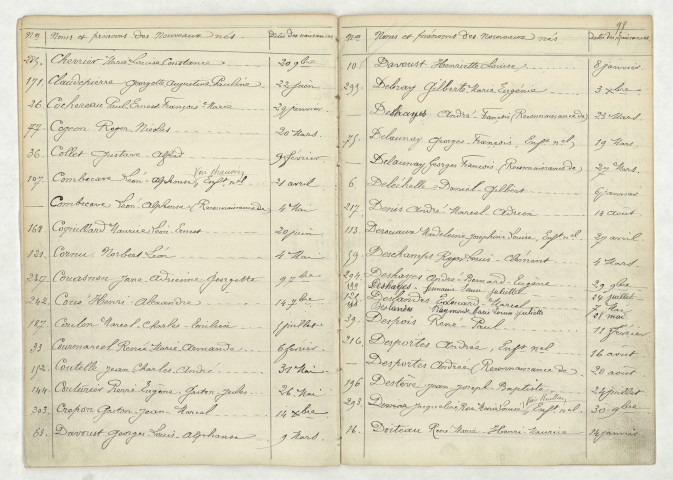 Nos Noms et prénoms des Nouveaux nés Dates des naissances
285. Cherrier Marie Louise Constance 20 9bre
171. Claudepierre Georgette Augustine Pauline 22 juin
26. Cochereau Paul Ernest François Marie 29 janvier
77. Cogeon Roger Nicolas 20 Mars
36. Collet Gustave Alfred 9 février
107. Combecave Léon Alphonse, Enft nel 21 avril
— Combecave Léon Alphonse (Reconnaissance de) 4 Mai
168 Coquillard Maurice Léon Ernest 20 juin
121. Cornu Norbert Léon 4 Mai
Couasnon Jane Adrienne Georgette 9 7bre
242. Cous Henri Alexandre 14 7bre
187. Coulon Marcel Charles Emilien 1 juillet
33 Courmarcel René Marie Armande 6 février
152. Coutelle Jean Charles André 31 Mai
144 Couturier Pierre Eugène Gaston Jules 26 Mai
303. Crepon Gaston Jean Marcel 14 Xbre
63. Davoust Georges Louis Alphonse 9 Mars
98
Nos Noms et prénoms des Nouveaux nés Dates des naissances
10. Davoust Henriette Louise 8 janvier
295. Delnay Gilberte Marie Eugénie 3 Xbre
— Delhayes André François (Reconnaissance de) 23 Mars
75. Delaunay Georges François, Enft nel 19 Mars
— Delaunay Georges François (Reconnaissance de) 27 Mars
6 Deléchelle Daniel Gilbert 6 janvier
217. Denis André Marcel Adrien 14 août
113. Derouaux Madeleine Joséphine Louise, Enft nel 29 avril
59. Deschamps Roger Louis Clément 4 Mars
294. Deshayes André Bernard Eugène 29 9bre
199 Deshayes Germaine Louise Juliette 24 juillet
125 Deslandes Edouard Marcel 7 Mai
Deslandes Raymonde Marie Louise Juliette 21 mai
39. Despois René Paul 11 février
216. Desportes Andrée, Enft nel 16 août
Desportes Andrée (Reconnaissance de) 20 août
196 Destève Jean Joseph Baptiste 24 juillet
293. Jacqueline Rose Marie Louise, Enft nel 30 9bre
16. Doiteau René Marie Henri Maurice 14 janvier